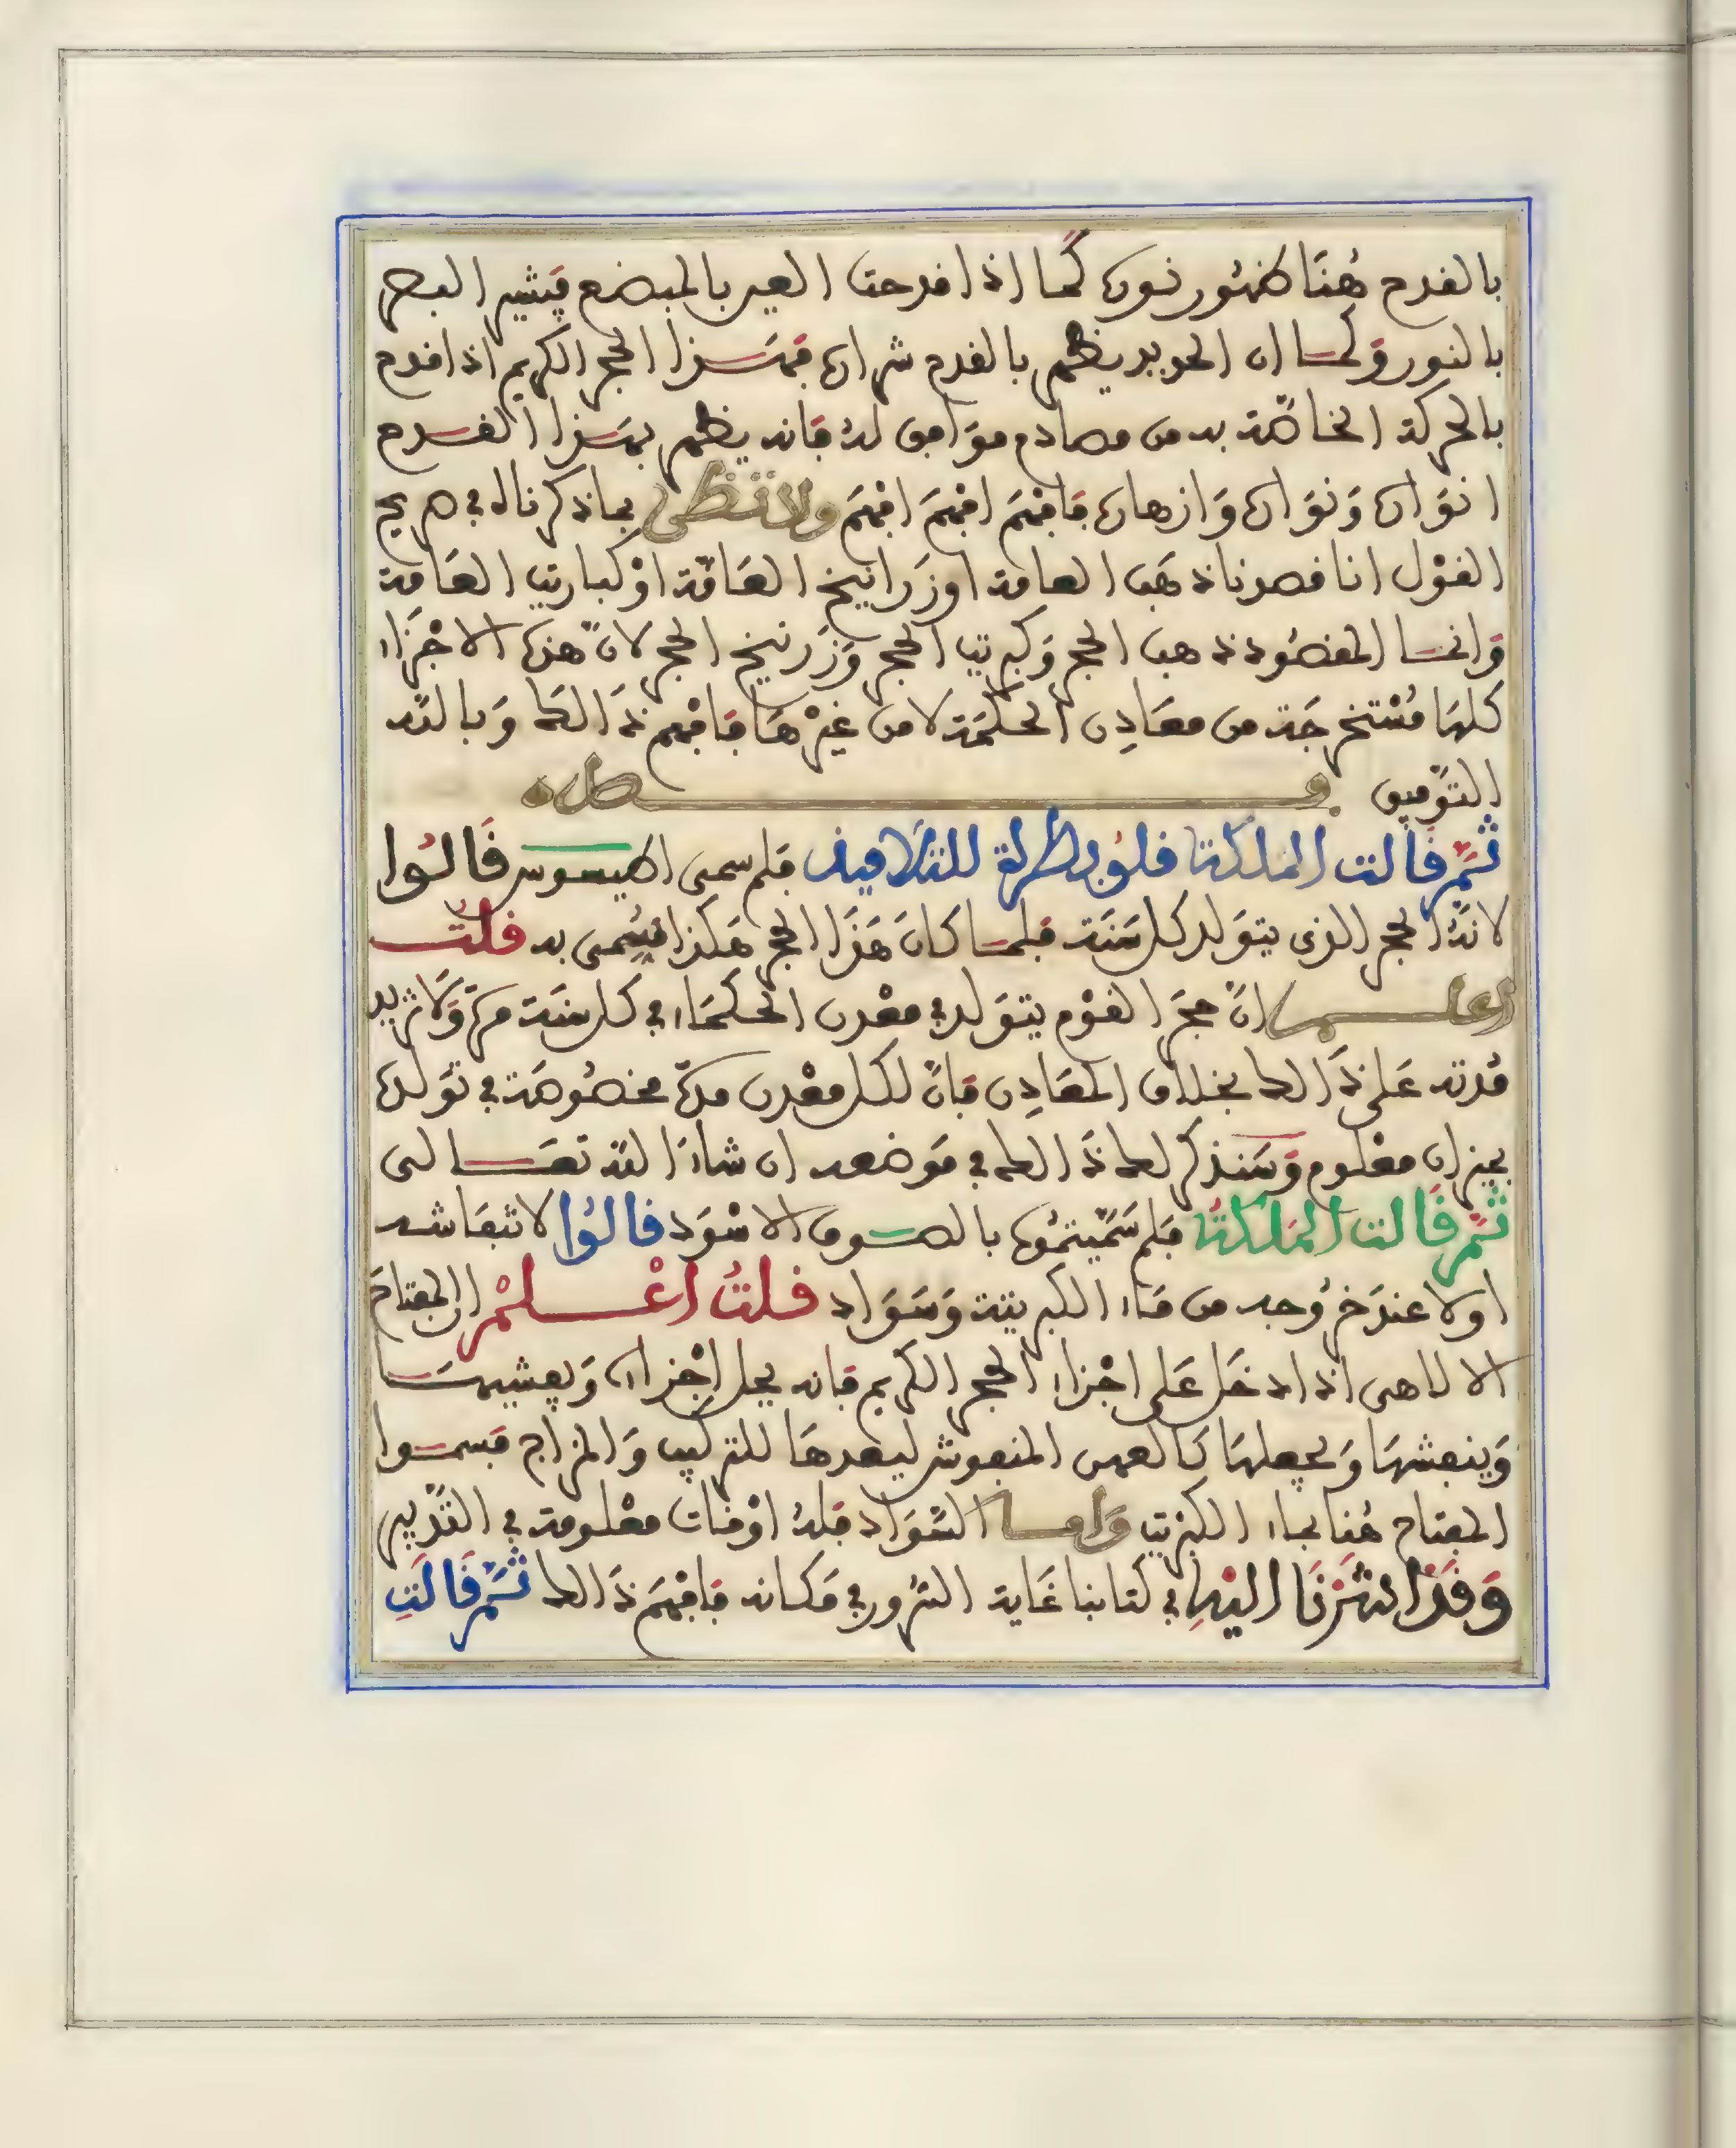 بالقدح هُنَا ظهُور نوره كمَا اذا قدحت العين بالمبضع فيشير البصر
بالنور وَكما ان الحديد يظهر بالقدح شراره فهَذا الحجر الكريم اذا قدح
بالحركة الخاصّة به من مصادم موَافق لهُ فانه يظهر بهَذا القدح
انوَاره وَنوَاره وَازهاره فافهَم افهَم افهَم ولا تظن بما ذكرناه في صريح
القوْل انا قصدنا ذهَب العامة اوزَرانيخ العَامّة اوْ كباريت العَامة
وَانما المقصُود ذهب الحجر وَكبريت الحجر وَزرنيخ الحجر لانّ هذه الاجْزَاء
كلهَا مُسْتخرجَة من معَادِن الحكمَة لا من غيْرهَا فافهم ذَالك وَبالله
التوفيق فصل
ثمَّ قالت الملكة قلُوبطرة للتلاميذ فلم سمى اطيسوس قَالوُا
لانهُ الحجر الذى يتوَلد كل سَنَة فلما كانَ هَذَا الحجر هَكذا فسُمى به قلتُ
اعلم انّ حجرَ القوْم يتوَلد في معْدن الحكمَاء في كل سَنَة مرّة وَلا تزيد
مُدته عَلى ذَالك بخلاف المعَادِن فانّ لكل معْدن مدّة مخصُوصَة في توَلده
بميزان معْلوم وَسَنذكر لك ذَالك في موَضعه ان شاءَ الله تعَالى
ثمَّ قَالت المَلكةُ فلم سَمّيتمُوه بالصوف الاسْوَد قالوُا لانتفاشه
اولا عندَ خرُوجه من مَاء الكبريتة وَسَوَاده قلتُ اعْلمْ ان المفتاحَ
الالاهى اذا دخَل عَلى اجْزاء الحجر الكريم فانه يحل اجْزاءه وَيفشيهَا
وَينفشهَا وَيجعلهَا كالعهن المنفوش ليعدهَا للتركيب وَالمزاج فسموا
المفتاح هُنا بماء الكبريت وَامّا السّوَاد فلهُ اوْقات معْلومة في التدْبير
وَقدْ اشَرْنَا اليْهِ في كتابنا غَاية السُّرور في مَكانه فافهَم ذَالك ثمَّ قَالَتِ